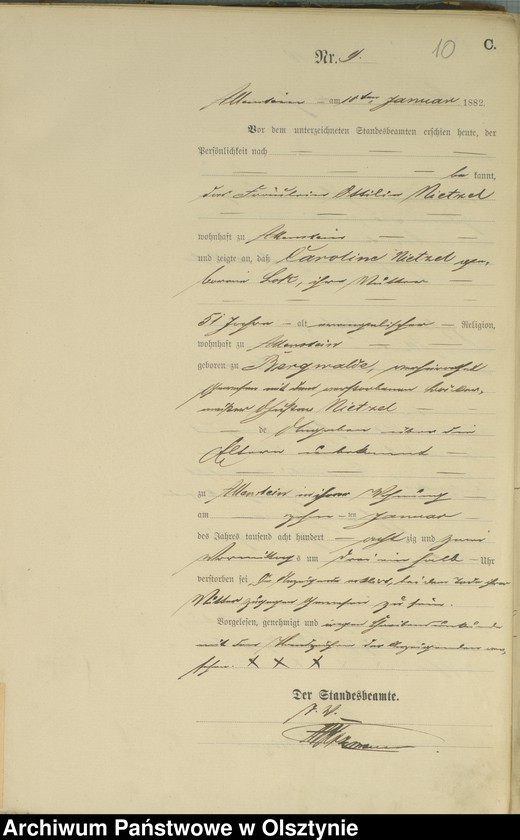 10 C.
Nr. 9.
Allenstein am 11ten Januar 1882.
Vor dem unterzeichneten Standesbeamten erschien heute, der
Persönlichkeit nach
bekannt,
das Fräulein Ottilie Nietzel
wohnhaft zu Allenstein
und zeigte an, daß Caroline Nietzel ge-
borene , ihre Mutter
51 Jahre alt, evangelischer Religion,
wohnhaft zu Allenstein
geboren zu Bergwalde, verheirathet
gewesen mit dem verstorbenen
meister Nietzel
de Angaben über die
Eltern unbekannt
zu Allenstein in ihrer Wohnung
am zehn ten Januar
des Jahres tausend acht hundert achtzig und zwei
Vormittags um drei ein halb Uhr
verstorben sei, die Anzeigende erklärt, bei dem Tode ihrer
Mutter zugegen gewesen zu sein.
Vorgelesen, genehmigt und wegen
mit den Handzeichen der Anzeigenden ver-
sehen. X X X
Der Standesbeamte.
Archiwum Państwowe w Olsztynie